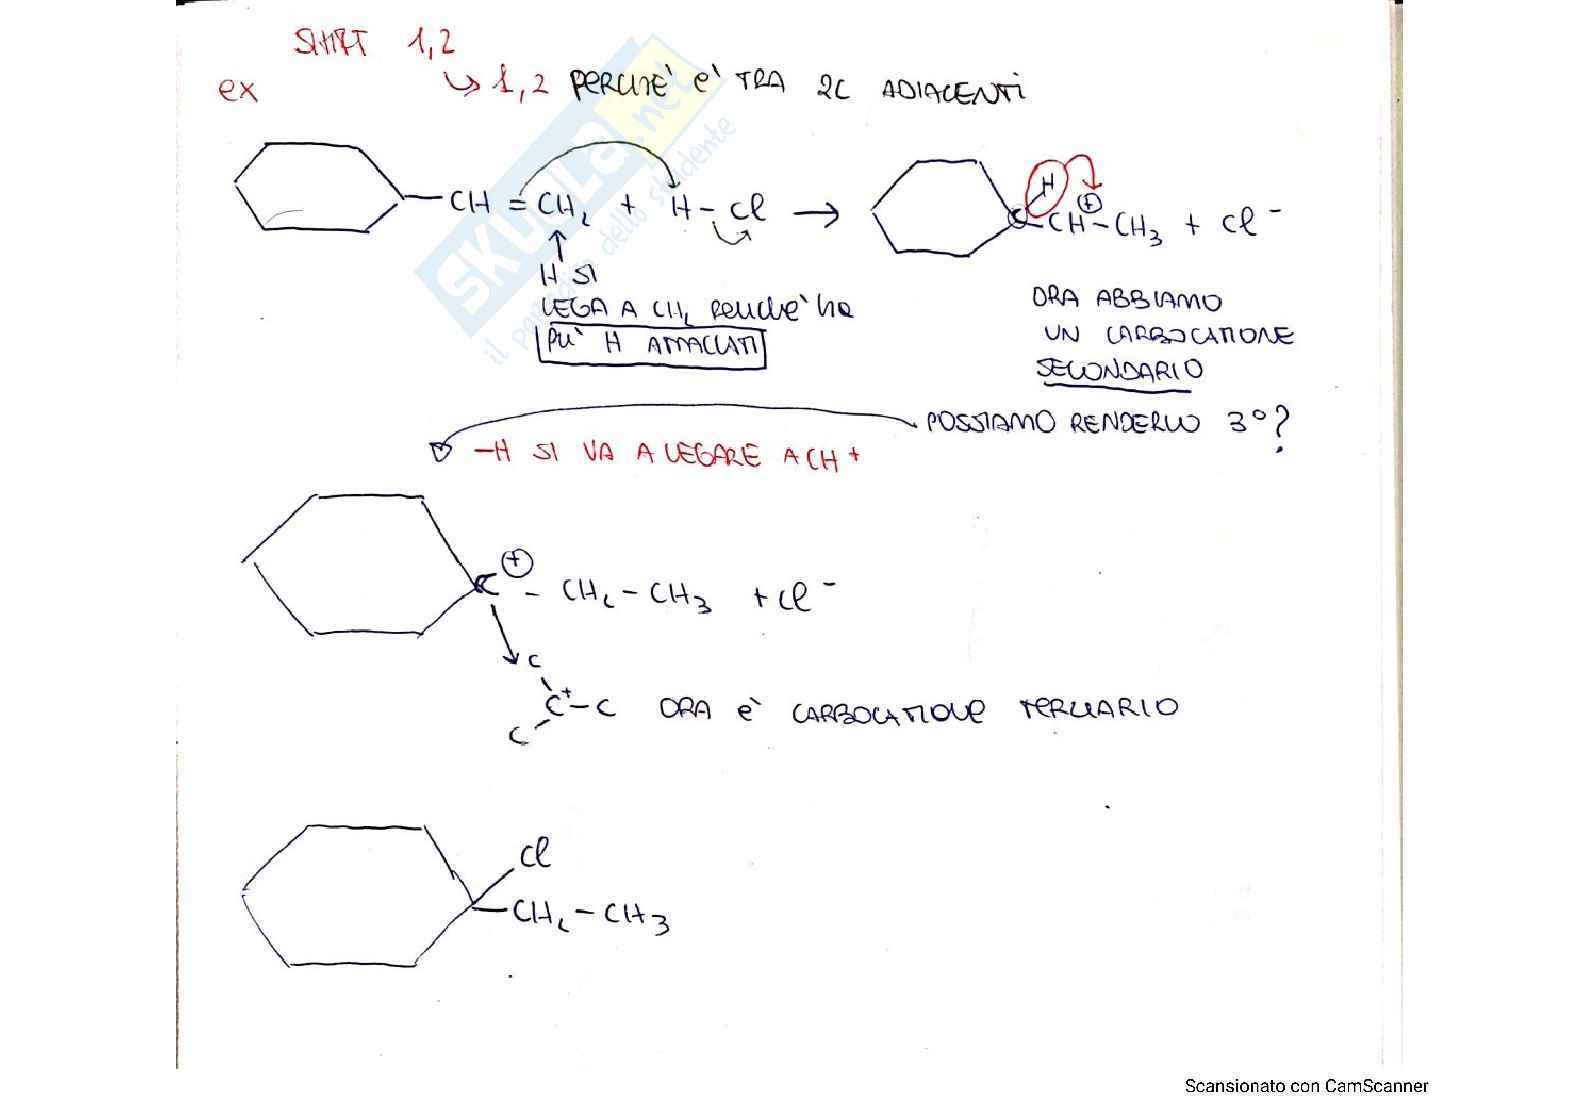 SHIFT 1,2
ex ↳ 1,2 PERCHÈ È TRA 2C ADIACENTI
-CH = CH2 + H - Cl → C-CH-CH3 + Cl-
H
+
H SI
LEGA A CH2 PERCHÈ ha
PIÙ H ATTACCATI
ORA ABBIAMO
UN CARBOCATIONE
SECONDARIO
POSSIAMO RENDERLO 3°?
-H SI VA A LEGARE A CH+
C+ - CH2 - CH3 + Cl-
C
C+ - C ORA È CARBOCATIONE TERZIARIO
C
Cl
-CH2 - CH3
SKUOLA.net
il paradiso dello studente
Scansionato con CamScanner